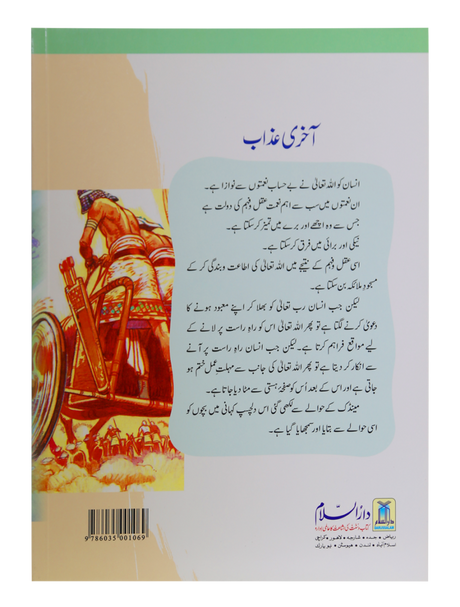 آخری عذاب
انسان کو اللہ تعالیٰ نے بے حساب نعمتوں سے نوازا ہے۔
ان نعمتوں میں سب سے اہم نعمت عقل و فہم کی دولت ہے
جس سے وہ اچھے اور برے میں تمیز کر سکتا ہے۔
نیکی اور برائی میں فرق کر سکتا ہے۔
اسی عقل و فہم کے نتیجے میں اللہ تعالیٰ کی اطاعت و بندگی کر کے
مسجودِ ملائکہ بن سکتا ہے۔
لیکن جب انسان رب تعالیٰ کو بھلا کر اپنے معبود ہونے کا
دعویٰ کرنے لگتا ہے تو پھر اللہ تعالیٰ اس کو راہِ راست پر لانے کے
لیے مواقع فراہم کرتا ہے۔ لیکن جب انسان راہِ راست پر آنے
سے انکار کر دیتا ہے تو پھر اللہ تعالیٰ کی جانب سے مہلتِ عمل ختم ہو
جاتی ہے اور اس کے بعد اُس کو صفحۂ ہستی سے مٹا دیا جاتا ہے۔
مینڈک کے حوالے سے لکھی گئی اس دلچسپ کہانی میں بچوں کو
اسی حوالے سے بتایا اور سمجھایا گیا ہے۔
دارالسلام
کتاب و سنت کی اشاعت کا عالمی ادارہ
ریاض • جدہ • شارجہ • لاہور • کراچی
اسلام آباد • لندن • ہیوسٹن • نیویارک
9 786035 001069